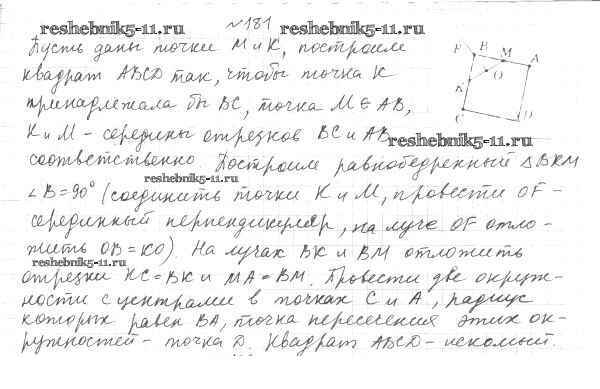 №181
reshebnik5-11.ru reshebnik5-11.ru
Пусть даны точки M и K, построим
квадрат ABCD так, чтобы точка K
принадлежала бы BC, точка M ∈ AB,
K и M – середины отрезков BC и AB
reshebnik5-11.ru
соответственно. Построим равнобедренный △BKM
reshebnik5-11.ru
∠B=90° (соединить точки K и M, провести OF –
серединный перпендикуляр, на луче OF отло-
жить OB=KO). На лучах BK и BM отложить
reshebnik5-11.ru
отрезки KC=BK и MA=BM. Провести две окруж-
ности с центрами в точках C и A, радиус
которых равен BA, точка пересечения этих ок-
ружностей – точка D. Квадрат ABCD – искомый.
F B M A
O
K
C D